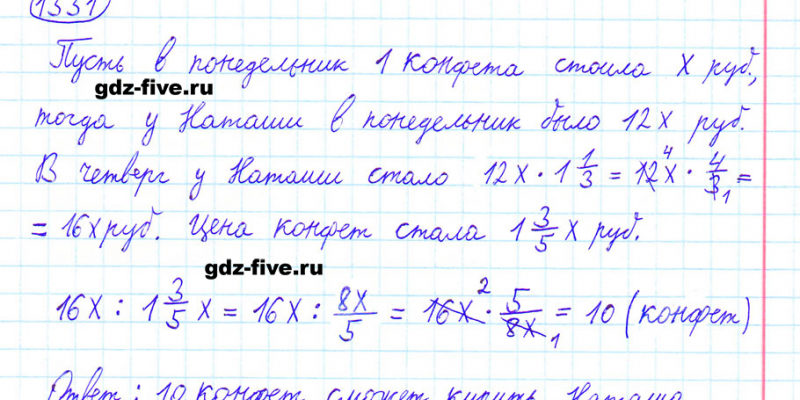 1331
Пусть в понедельник 1 конфета стоила х руб.,
gdz-five.ru
тогда у Наташи в понедельник было 12х руб.
В четверг у Наташи стало 12х · 1 1/3 = 12х 4 · 4/3 1 =
= 16х руб. Цена конфет стала 1 3/5 х руб.
gdz-five.ru
16х : 1 3/5 х = 16х : 8х/5 = 16х 2 · 5/8х 1 = 10 (конфет)
Ответ: 10 конфет сможет купить Наташа